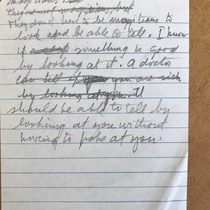 They don't have to be magicians to
look and be able to tell. I know
if something is good
by looking at it. A doctor
can tell if you are sick
by looking at you. It
should be able to tell by
looking at you without
having to poke at you.